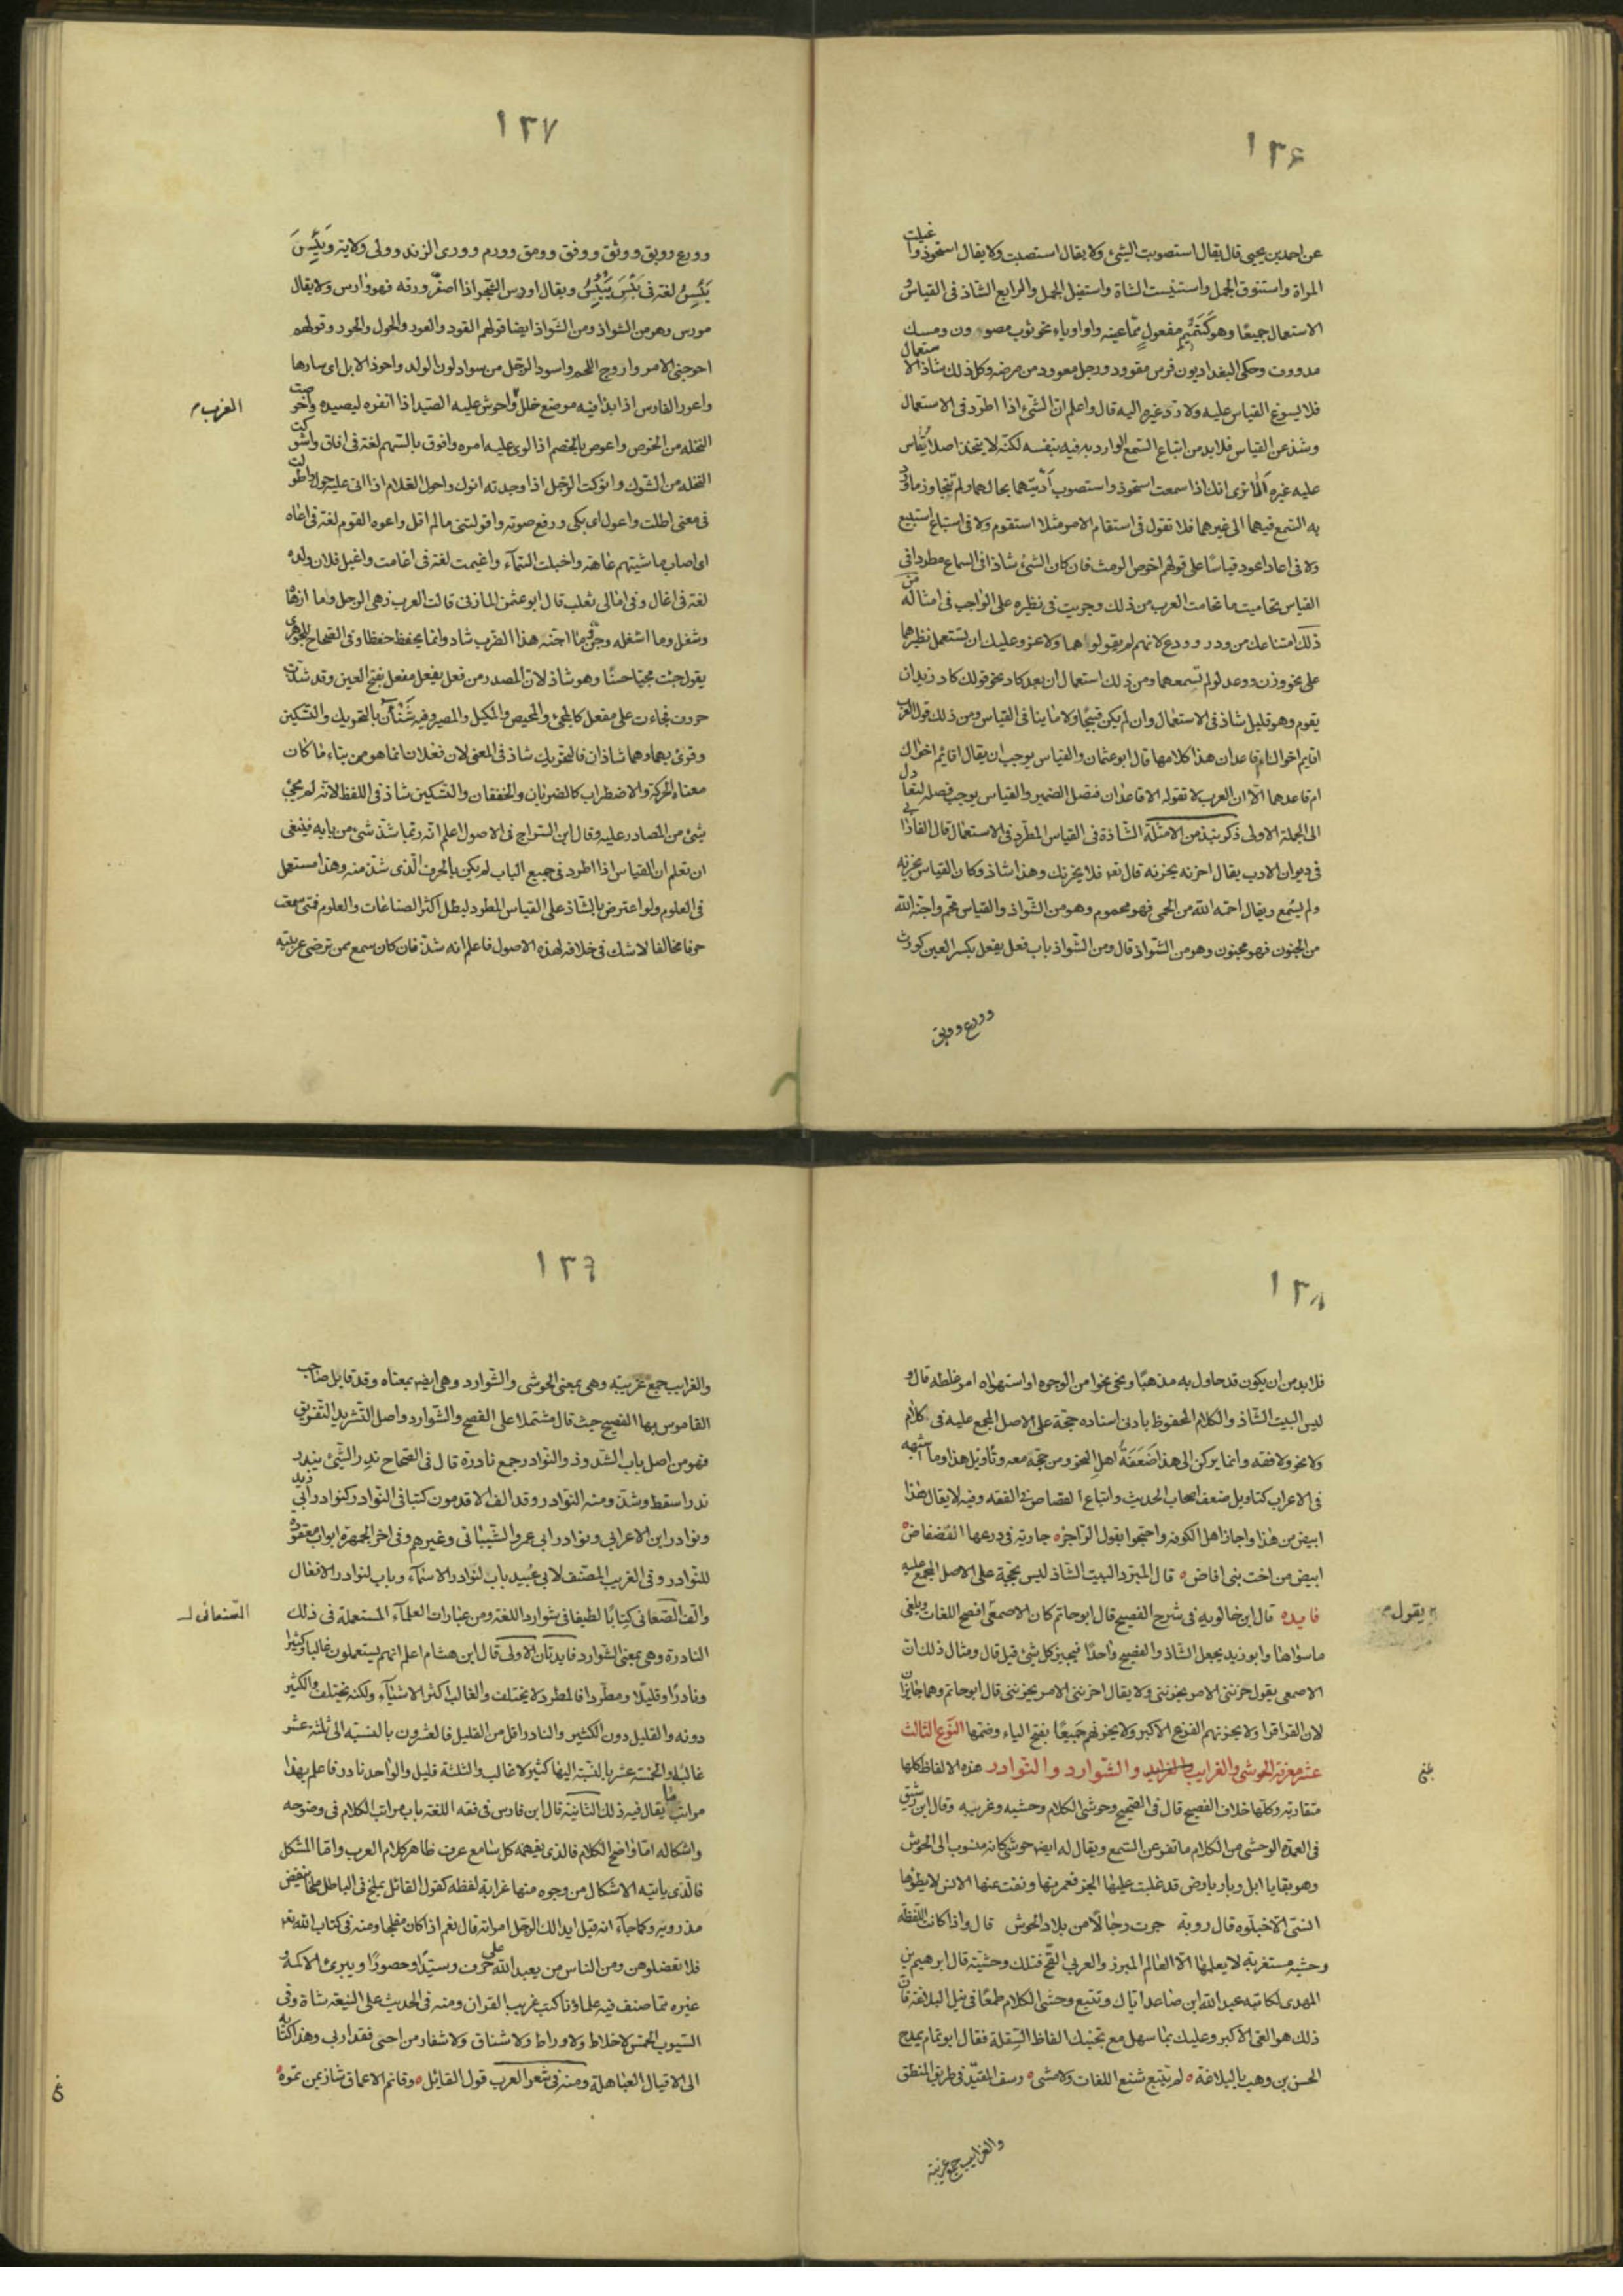 ١٣۶
عن احمد بن يحيى قال يقال استصوبت الشئ ولا يقال استصبت ولا يقال استحوذ واغيلت
المراة واستنوق الجمل واستتيست الشاة واستفيل الجمل والرابع الشاذ فى القياس و
الاستعمال جميعا وهو كتتميم مفعول مما عينه واو او ياء نحو ثوب مصوون ومسك
مدووف وحكى البغداديون فرس مقوود ورجل معوود من مرضه وكل ذلك شاذ الاستعمال
فلا يسوغ القياس عليه ولا رد غيره اليه قال واعلم ان الشئ اذا اطرد فى الاستعمال
وشذ عن القياس فلا بد من اتباع السمع الوارد به فيه بنفسه لكنه لا يتخذ اصلا يقاس
عليه غيره الا ترى انك اذا سمعت استحوذ واستصوب اديتهما بحالهما ولم تتجاوز ما ورد
به السمع فيهما الى غيرهما فلا تقول فى استقام الامر مثلا استقوم ولا فى استباع استبيع
ولا فى اعاد اعود قياسا على قولهم اخوص الرمث فان كان الشئ شاذا فى السماع مطردا فى
القياس تحاميت ما تحامت العرب من ذلك وجريت فى نظيره على الواجب فى امثاله من
ذلك امتناعك من وذر وودع لانهم لم يقولوا هما ولا غرو عليك ان تستعمل نظيرهما
على نحو وزن ووعد لو لم تسمعهما ومن ذلك استعمال ان بعد كاد نحو قولك كاد زيد ان
يقوم وهو قليل شاذ فى الاستعمال وان لم يكن قبيحا ولا ما ينافى القياس ومن ذلك قول العرب
اقايم اخواك ام قاعدان هذا كلامها قال ابو عثمان والقياس يوجب ان يقال اقائم اخواك
ام قاعد هما الا ان العرب لا تقوله الا قاعدان فتصل الضمير والقياس يوجب فصله ليتعادل
الى الجملة الاولى ذكر نبذ من الامثلة الشاذة فى القياس المطرد فى الاستعمال قال الفارابى
فى ديوان الادب يقال احزنه يحزنه قال تع فلا يحزنك وهذا شاذ وكان القياس يحزنه
ولم يسمع ويقال احمه الله من الحمى فهو محموم وهو من الشواذ والقياس محم واجنه الله
من الجنون فهو مجنون وهو من الشواذ قال ومن الشواذ باب فعل يفعل بكسر العين كورث
وورع ووبق
١٣٧
وورع ووبق ووثق ووفق وومق وورم وورى الزند وولى ولاية ويَئِسَ
يَيْئِسُ لغة فى يَئِسَ يَيْئَسُ ويقال اورس الشجر اذا اصفر ورقه فهو وارس ولا يقال
مورس وهو من الشواذ ومن الشواذ ايضا قولهم القود والعود والحول والخور وقولهم
احوجنى الامر واروح اللحم واسود الرجل من سواد لون الولد واحوذ الابل اى سارها
واعور الفارس اذا بدا فيه موضع خلل واحوش عليه الصيد اذا انفره ليصيده واخوصت
النخلة من الخوص واعوص بالخصم اذا لوى عليه امره وافوق بالسهم لغة فى افاق واشوكت
النخله من الشوك وانوكت الرجل اذا وجدته انوك واحول الغلام اذا اتى عليه حول واطولت
فى معنى اطلت واعول اى بكى ورفع صوته واقولتنى ما لم اقل واعوه القوم لغة فى اعاه
اى اصاب ماشيتهم عاهة واخيلت السماء واغيمت لغة فى اغامت واغيل فلان ولده
لغة فى اغال وفى امالى ثعلب قال ابو عثمن المازنى قالت العرب زهى الرجل وما ازهاه
وشغل وما اشغله وجن وما اجنه هذا الضرب شاد وانما يحفظ حفظا وفى الصحاح للجوهرى
يقول جئت مجيا حسنا وهو شاذ لان المصدر من فعل يفعل مفعل بفتح العين وقد شذت
حروف فجاءت على مفعل كالمجئ والمحيض والمكيل والمصير وفيه شَنَأن بالتحريك والتسكين
وقرئ بهما وهما شاذان فالتحريك شاذ فى المعنى لان فعلان انما هو من بناء ما كان
معناه الحركة والاضطراب كالضربان والخفقان والتسكين شاذ فى اللفظ لانه لم يجئ
شئ من المصادر عليه وقال ابن السراج فى الاصول اعلم انه ربما شذ شئ من بابه فينبغى
ان تعلم ان القياس اذا اطرد فى جميع الباب لم يكن بالحرف الذى شذ منه وهذا مستعمل
فى العلوم ولو اعترض بالشاذ على القياس المطرد لبطل اكثر الصناعات والعلوم فمتى سمعت
حرفا مخالفا لا شك فى خلافه لهذه الاصول فاعلم انه شذ فان كان سمع ممن ترضى عربيته
العرب م
١٣٨
فلا بد من ان يكون قد حاول به مذهبا ونحى نحوا من الوجوه او استهواه امر غلطه قال و
ليس البيت الشاذ والكلام المحفوظ بادنى اسناده حجة على الاصل المجمع عليه فى كلام
ولا نحو ولا فقه وانما يركن الى هذا ضَعَفَةُ اهل النحو ومن حجة معه وتاويل هذا وما اشبهه
فى الاعراب كتاويل ضعف اصحاب الحديث واتباع القصاص فى الفقه وفيه لا يقال هذا
ابيض من هذا واجاز اهل الكوفه واحتجوا بقول الراجز ه جارية فى درعها الفضفاض ه
ابيض من اخت بنى اباض ه قال المبرد البيت الشاذ ليس بحجة على الاصل المجمع عليه
فايده قال ابن خالويه فى شرح الفصيح قال ابو حاتم كان الاصمعى افصح اللغات ويلغى
ما سواها وابو زيد يجعل الشاذ والفصيح واحدا فيجيز كل شئ قيل قال ومثال ذلك ان
الاصمعى يقول حزننى الامر يحزننى ولا يقال احزننى الامر يحزننى قال ابو حاتم وهما جايزان
لان القراء قراوا لا يحزنهم الفزع الاكبر ولا يحزنهم جميعا بفتح الياء وضمها النوع الثالث
عشر معرفة الحوشى والغرايب والشوارد والنوادر هذه الالفاظ كلها
متقاربة وكلها خلاف الفصيح قال فى الصحيح وحوشى الكلام وحشيه وغريبه وقال ابن رشيق
فى العمدة الوحشى من الكلام ما نفر عن السمع ويقال له ايض حوشى كانه منسوب الى الحوش
وهو بقايا ابل وبار بارض قد غلبت عليها الجن فعمرتها ونفت عنها الانس لا يطؤها
انسى الا خبلوه قال روبة جرت رجالا من بلاد الحوش قال واذا كانت اللفظة
وحشية مستغربة لا يعلمها الا العالم المبرز والعربى القح فتلك وحشية قال ابرهيم بن
المهدى لكاتبه عبد الله ابن صاعد اياك وتتبع وحشى الكلام طمعا فى نيل البلاغة فان
ذلك هو العى الاكبر وعليك بما سهل مع تجنبك الفاظ السفلة فقال ابو تمام يمدح
الحسن بن وهب بالبلاغة ه لم يتتبع شنع اللغات ولا مشى ه رسف المقيد فى طريق المنطق
يقول م
بلغ
والغرايب جمع غريبة
١٣٩
والغرايب جمع غريبة وهى بمعنى الحوشى والشوارد وهى ايض بمعناه وقد قابل صاحب
القاموس بها الفصيح حيث قال مشتملا على الفصح والشوارد واصل التشريد التفريق
فهو من اصل باب الشذوذ والنوادر جمع نادرة قال فى الصحاح ندر الشئ يندر
ندرا سقط وشذ ومنه النوادر وقد الف الاقدمون كتبا فى النوادر كنوادر ابى زيد
ونوادر ابن الاعرابى ونوادر ابى عمرو الشيبانى وغيرهم وفى اخر الجمهرة ابواب معقودة
للنوادر وفى الغريب المصنف لابى عبيد باب لنوادر الاسماء وباب لنوادر الافعال
والف الصغانى كتابا لطيفا فى شوارد اللغة ومن عبارات العلماء المستعملة فى ذلك
النادرة وهى بمعنى الشوارد فايدتان الاولى قال ابن هشام اعلم انهم يستعملون غالبا وكثيرا
ونادرا وقليلا ومطردا فالمطرد لا يختلف والغالب اكثر الاشياء ولكنه يختلف والكثير
دونه والقليل دون الكثير والنادر اقل من القليل فالعشرون بالنسبة الى ثلثة عشر
غالبها والخمسة عشر بالنسبة اليها كثير لا غالب والثلثة قليل والواحد نادر فاعلم بهذا
مراتب ما يقال فيه ذلك الثانية قال ابن فارس فى فقه اللغة باب مراتب الكلام فى وضوحه
واشكاله اما واضح الكلام فالذى يفهمه كل سامع عرف ظاهر كلام العرب واما المشكل
فالذى ياتيه الاشكال من وجوه منها غرابة لفظه كقول القائل يملخ فى الباطل ملخا ينفض
مذرويه وكما جاء انه قيل ايدالك الرجل امراته قال نعم اذا كان مفلجا ومنه فى كتاب الله تع
فلا تعضلوهن ومن الناس من يعبد الله على حرف وسيدا وحصورا ويبرئ الاكمه و
غيره مما صنف فيه علماؤنا كتب غريب القران ومنه فى الحديث على التيعة شاة وفى
السيوب الخمس لا خلاط ولا وراط ولا شناق ولا شغار من اجبى فقد اربى وهذا كتابه
الى الاقيال العباهلة ومنه فى شعر العرب قول القائل ه وقاتم الاعماق شاز بمن عوه ه
الصنعانى